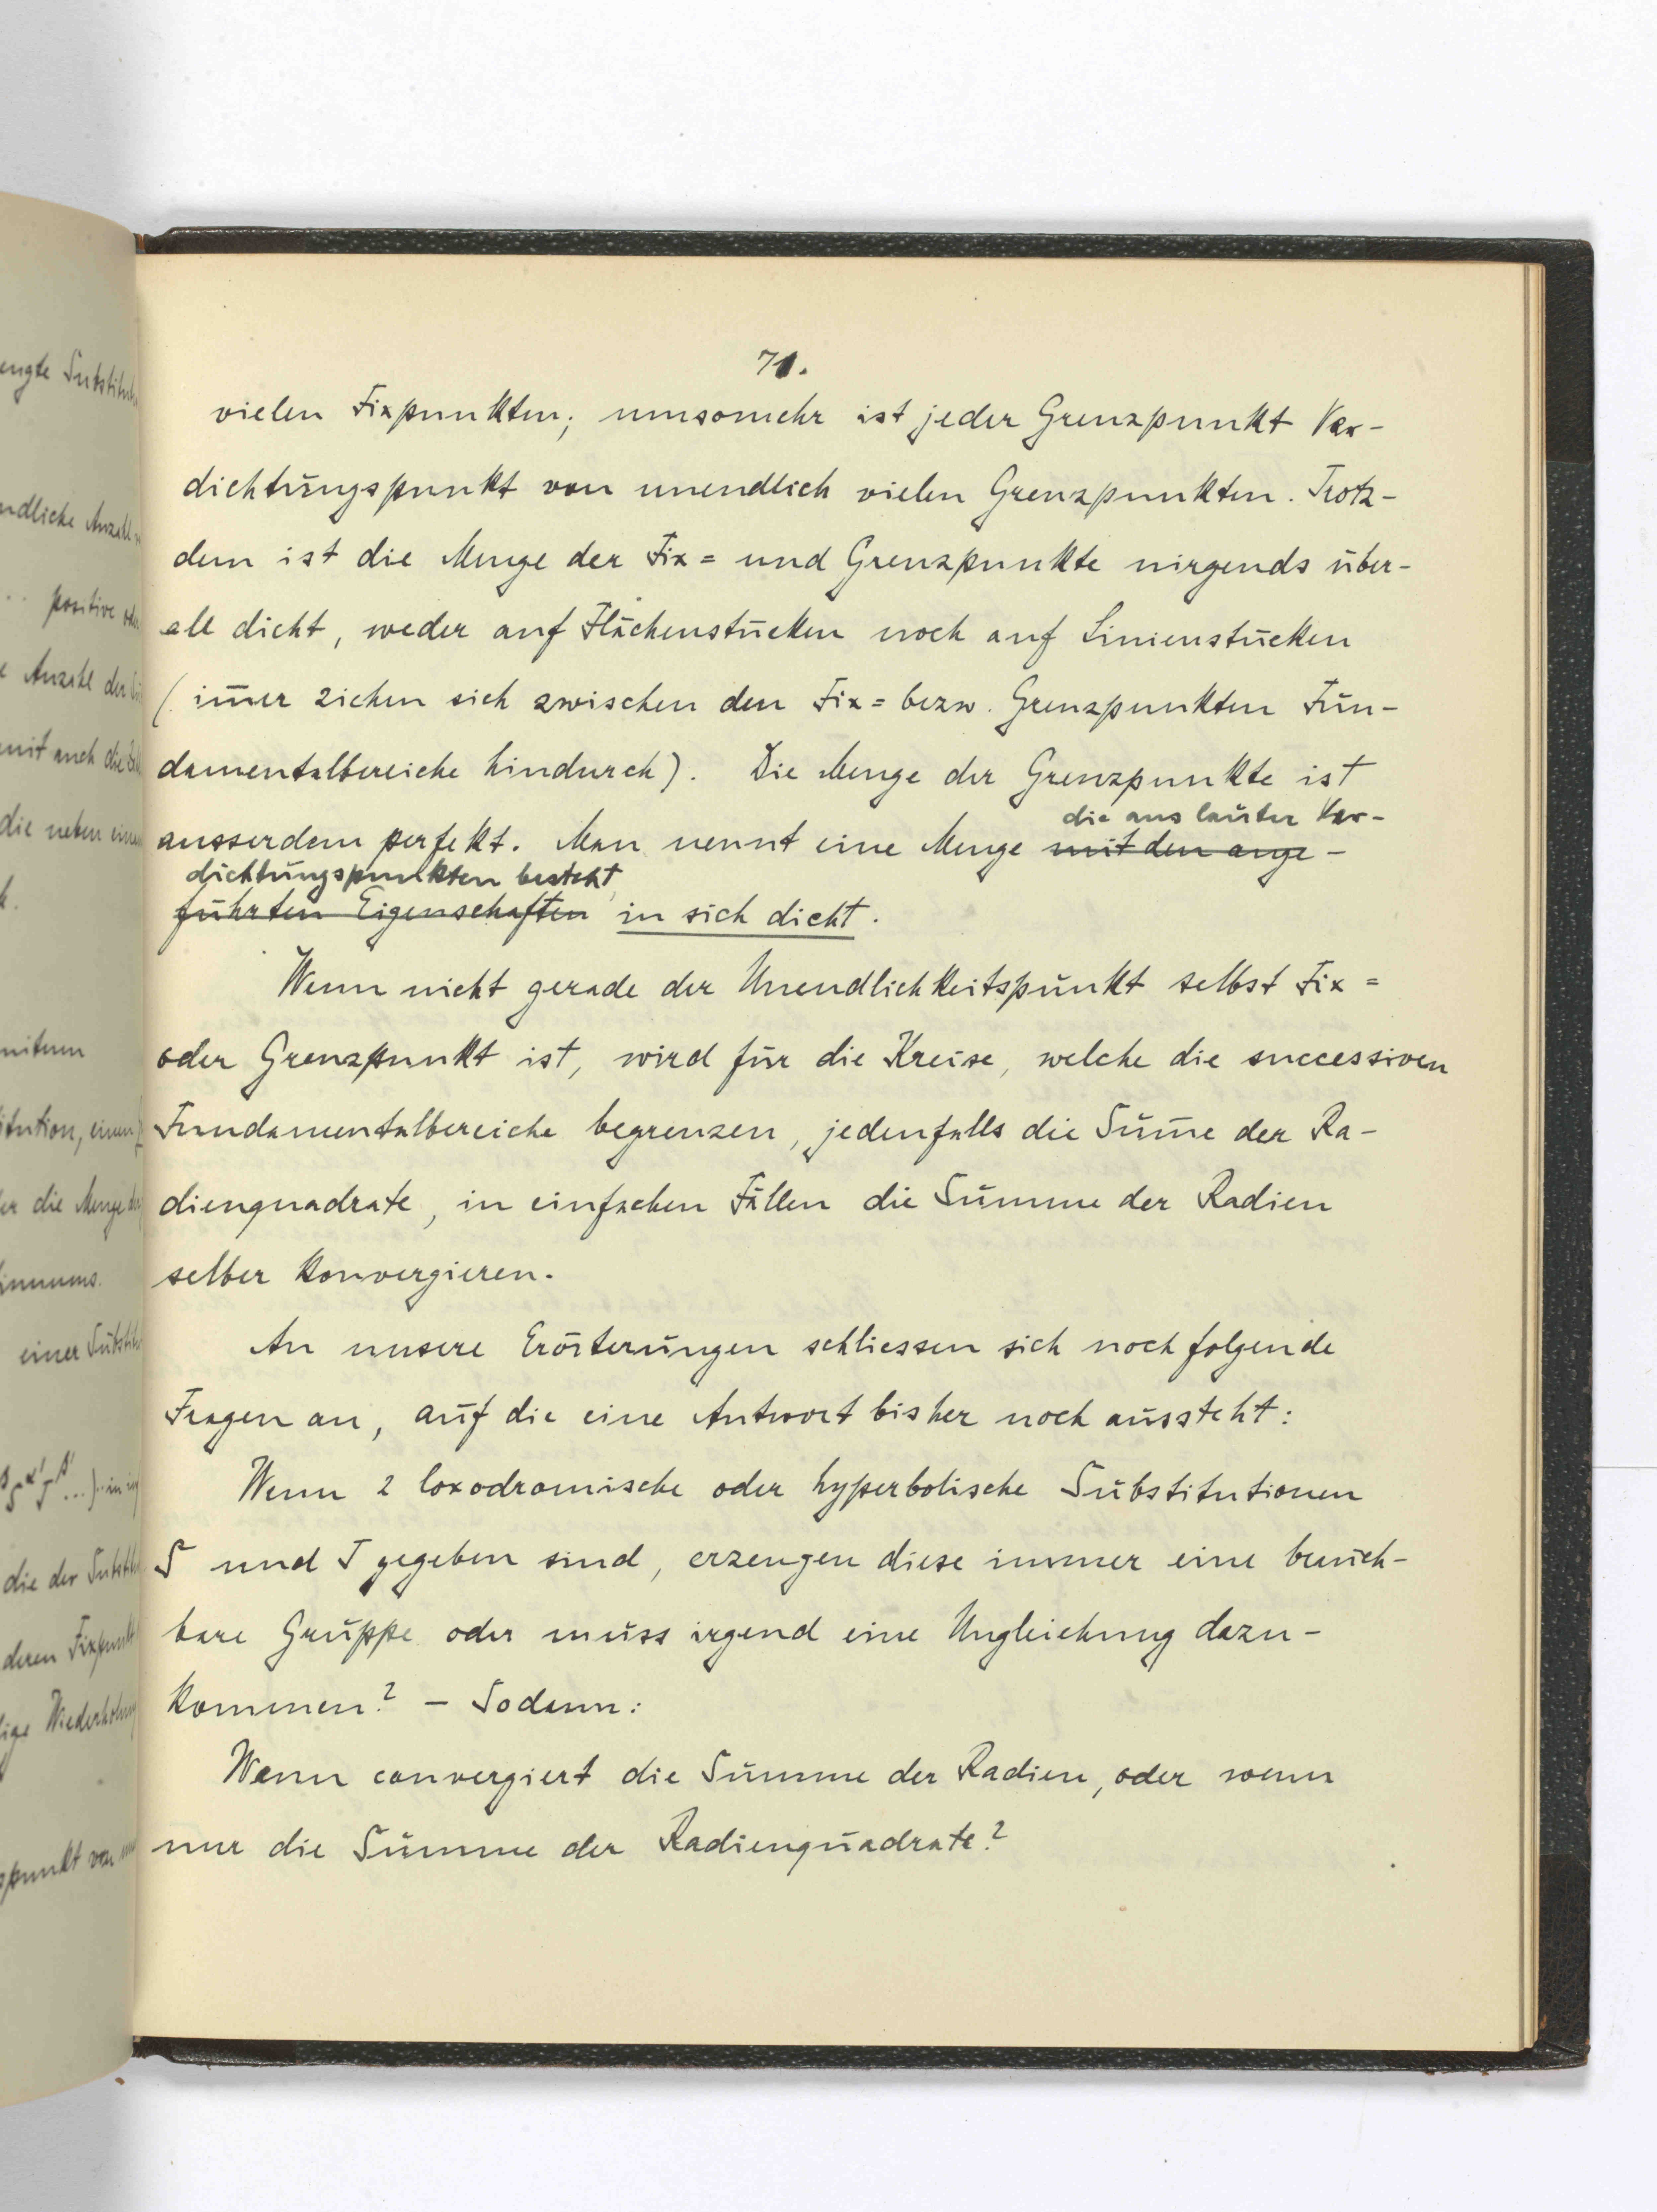 71.
vielen Fixpunkten; umsomehr ist jeder Grenzpunkt Ver-
dichtungspunkt von unendlich vielen Grenzpunkten. Trotz-
dem ist die Menge der Fix= und Grenzpunkte nirgends über-
all dicht, weder auf Flächenstücken noch auf Linienstücken
(im̅er ziehen sich zwischen den Fix= bezw. Grenzpunkten Fun-
damentalbereiche hindurch). Die Menge der Grenzpunkte ist
die aus lauter Ver-
ausserdem perfekt. Man nennt eine Menge mit den ange-
dichtungspunkten besteht,
führten Eigenschaften in sich dicht.
Wenn nicht gerade der Unendlichkeitspunkt selbst Fix=
oder Grenzpunkt ist, wird für die Kreise, welche die successiven
Fundamentalbereiche begrenzen, jedenfalls die Sum̅e der Ra-
dienquadrate, in einfachen Fällen die Summe der Radien
selber konvergieren.
An unsere Erörterungen schliessen sich noch folgende
Fragen an, auf die eine Antwort bisher noch aussteht:
Wenn 2 loxodromische oder hyperbolische Substitutionen
S und T gegeben sind, erzeugen diese immer eine brauch-
bare Gruppe oder muss irgend eine Ungleichung dazu-
kommen? — Sodann:
Wann convergiert die Summe der Radien, oder wenn
nur die Summe der Radienquadrate?
engte Substitut
ndliche Anzahl
positive
Anzahl der
mit auch die
die neben einen
nitum
itution, einen
er die Menge
einer Substitu
die der Substit
deren Fixpunkt
lige Wiederholung
spunkt von